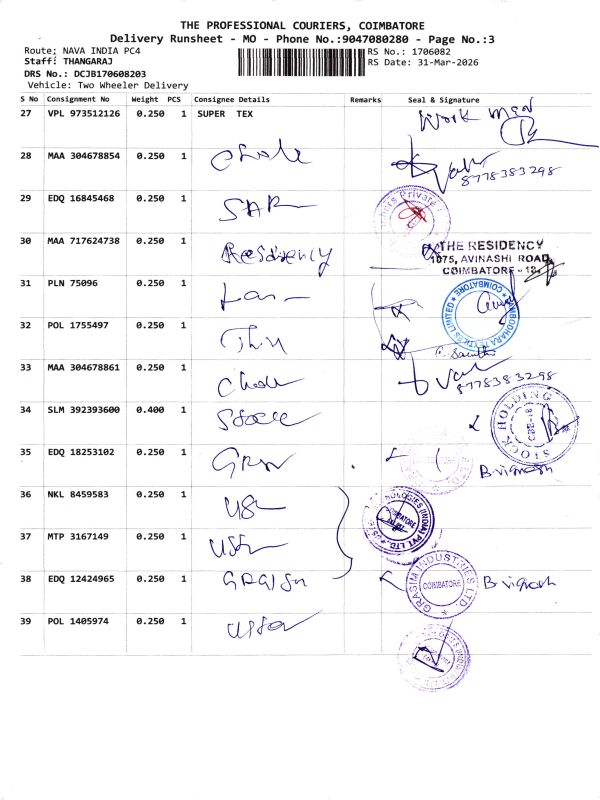 THE PROFESSIONAL COURIERS, COIMBATORE
Delivery Runsheet - MO - Phone No.:9047080280 - Page No.:3
Route: NAVA INDIA PC4
RS No.: 1706082
Staff: THANGARAJ
RS Date: 31-Mar-2026
DRS No.: DCJB170608203
Vehicle: Two Wheeler Delivery
S No Consignment No Weight PCS Consignee Details Remarks Seal & Signature
27 VPL 973512126 0.250 1 SUPER TEX Work man
28 MAA 304678854 0.250 1
8778383298
29 EDQ 16845468 0.250 1 SAR
30 MAA 717624738 0.250 1 Residency
THE RESIDENCY
1075, AVINASHI ROAD,
COIMBATORE - 18.
31 PLN 75096 0.250 1
32 POL 1755497 0.250 1
33 MAA 304678861 0.250 1
8778383298
34 SLM 392393600 0.400 1 Stock
STOCK HOLDING
35 EDQ 18253102 0.250 1
B. Vignesh
36 NKL 8459583 0.250 1
COIMBATORE
37 MTP 3167149 0.250 1
38 EDQ 12424965 0.250 1
GRASIM INDUSTRIES LTD.
COIMBATORE
B. Vignesh
39 POL 1405974 0.250 1